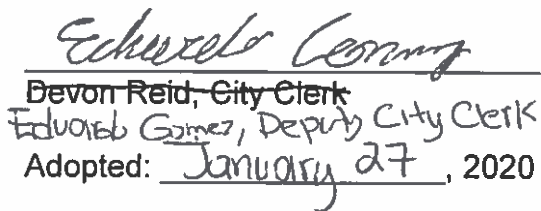 Devon Reid, City Clerk
Eduardo Gomez, Deputy City Clerk
Adopted: January 27, 2020